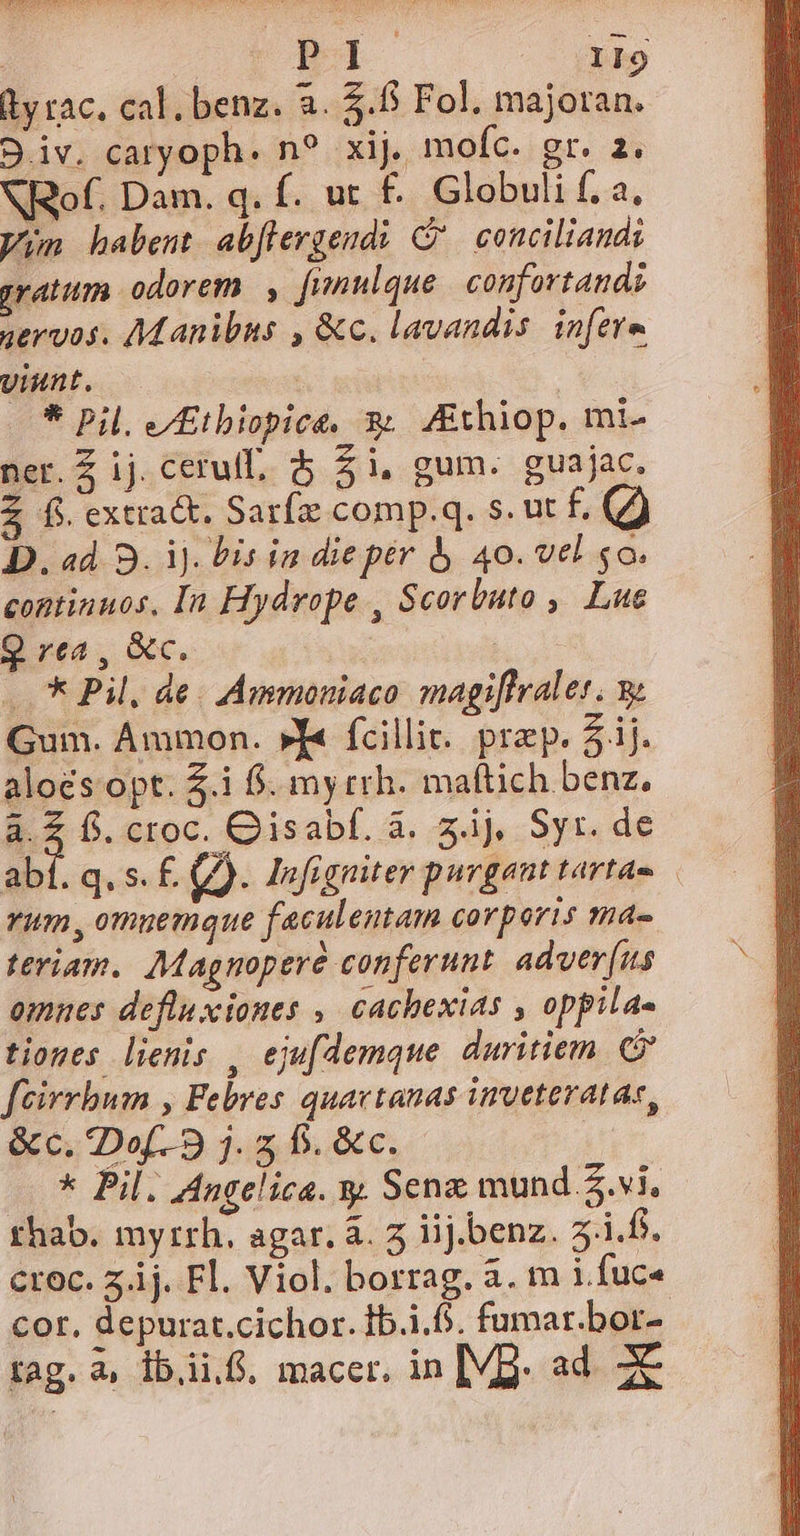 P I 119
ſtyrac. cal. benz. ā. ℥.ß Fol. majoran.
℈.iv. caryoph. nº xij. moſc. gr. 2.
Roſ. Dam. q. ſ. ut f. Globuli ſ. a,
Vim habent abſtergendi & conciliandi
gratum odorem , ſimulque confortandi
nervos. Manibus , &c. lavandis inſer-
viunt.
* Pil. Æthiopicæ. ℞ Æthiop. mi-
ner. ℥ ij. ceruſſ. ♁ ℥ i. gum. guajac.
℥ ß. extract. Sarſæ comp.q. s. ut f.
D. ad ℈. ij. bis in die per 40. vel 50.
continuos. In Hydrope , Scorbuto , Lue
♀ rea , &c.
* Pil. de Ammoniaco magiſtrales. ℞
Gum. Ammon. ſcillit. præp. ℥ ij.
aloës opt. ℥.i ß. myrrh. maſtich benz.
ā. ℥ ß. croc. is abſ. ā. ʒ.ij. Syr. de
abſ. q. s. f. Inſigniter purgant tarta-
rum, omnemque fæculentam corporis ma-
teriam. Magnoperè conferunt adverſus
omnes defluxiones , cachexias , oppila-
tiones lienis , ejuſdemque duritiem &
ſcirrhum , Febres quartanas inveteratas,
&c. Doſ. ℈ j. ʒ ß. &c.
* Pil. Angelicæ. ℞ Senæ mund.℥.vi.
rhab. myrrh. agar. ā. ʒ iij.benz. ʒ.i.ß.
croc. ʒ.ij. Fl. Viol. borrag. ā. m i.ſuc-
cor. depurat.cichor. ℔.i.ß. fumar.bor-
rag. ā, ℔.ii.ß. macer. in ad